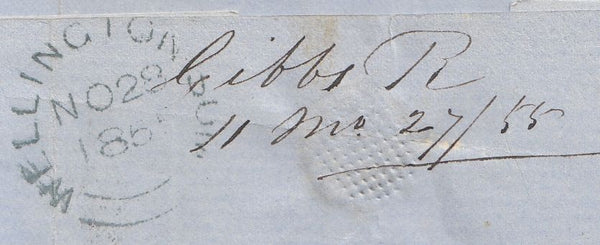 WELLINGTON
NO 28
185
Gibbs R
11 Mo. 27/55